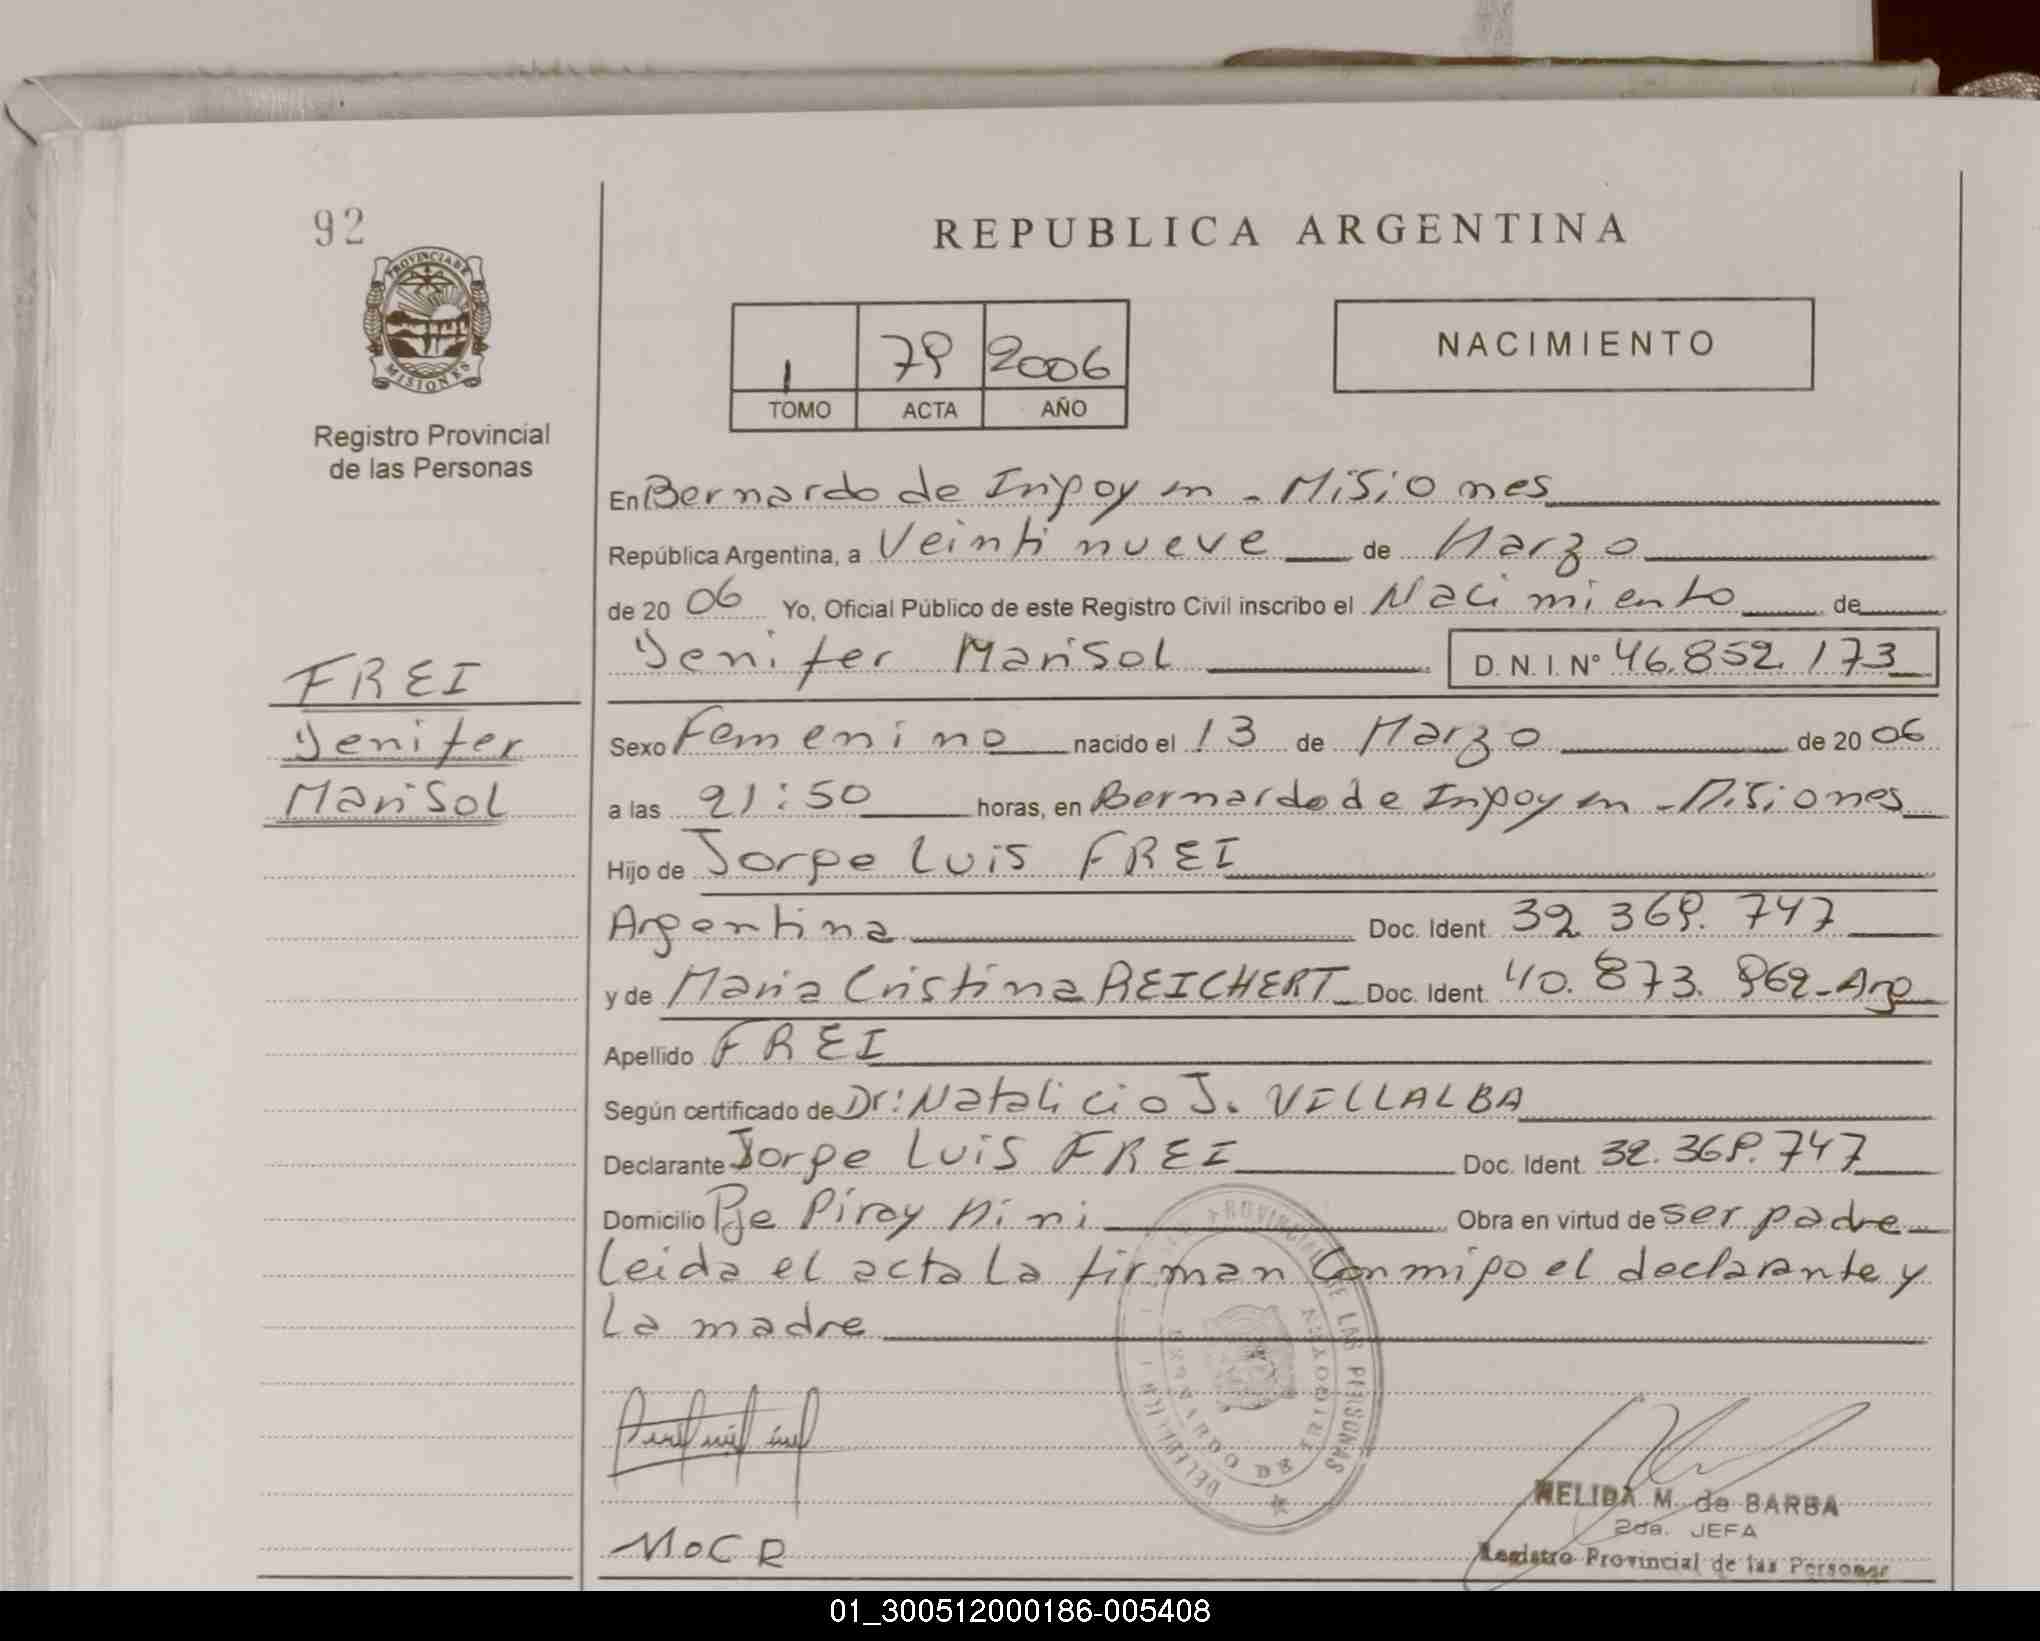 92
PROVINCIA DE
MISIONES
Registro Provincial
de las Personas
REPUBLICA ARGENTINA
1 79 2006
TOMO ACTA AÑO
NACIMIENTO
En Bernardo de Irigoyen - Misiones
República Argentina, a Veintinueve de Marzo
de 2006 Yo, Oficial Público de este Registro Civil inscribo el Nacimiento de
Yenifer Marisol D.N.I. N° 46.852.173
FREI
Yenifer
Marisol
Sexo Femenino nacido el 13 de Marzo de 2006
a las 21:50 horas, en Bernardo de Irigoyen - Misiones
Hijo de Jorge Luis FREI
Argentina Doc. Ident. 32.369.747
y de Maria Cristina REICHERT Doc. Ident. 40.873.962-Arg
Apellido FREI
Según certificado de Dr: Natalicio J. VILLALBA
Declarante Jorge Luis FREI Doc. Ident. 32.369.747
Domicilio Pje Piray Mini Obra en virtud de ser padre
Leida el acta La firman Conmigo el declarante y
La madre
PROVINCIAL DE LAS PERSONAS
MCR
NELIDA M. de BARBA
2da. JEFA
Registro Provincial de las Personas
01_300512000186-005408